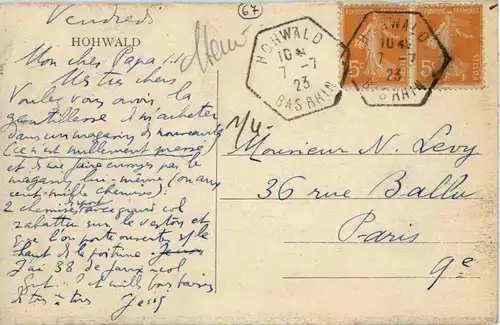 Vendredi
HOHWALD
67
HOHWALD
10
7-7
23
BAS RHIN
HOHWALD
10
7
23
BAS RHIN
5c
5c
POSTES
Mon cher Papa
Mes très chers
Voulez vous avoir la
gentillesse de m'acheter
dans un magasin de nouveautés
(ce n'est nullement pressé
et de me faire envoyer par le
magasin lui-même (ou aux
cent mille chemises):
2 chemises sport avec grand col
rabattu sur le veston et
que l'on porte ouverte s/ le
haut de la poitrine.
J'ai 38 de faux-col
mille baisers
à tous
Monsieur N. Levy
36 rue Ballu
Paris
9e